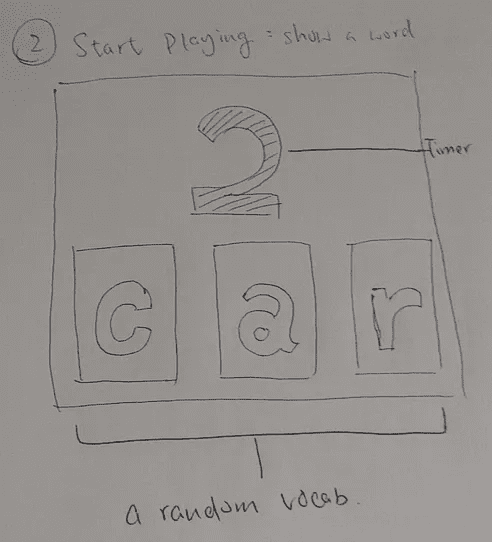 2 Start Playing : show a word
2
Timer
c a r
a random vocab.